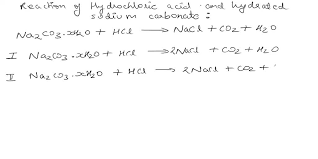 Reaction of Hydrochloric acid and hydrated
sodium carbonate :
Na2CO3.xH2O + HCl → NaCl + CO2 + H2O
I Na2CO3.xH2O + HCl → 2NaCl + CO2 + H2O
II Na2CO3.xH2O + HCl → 2NaCl + CO2 +